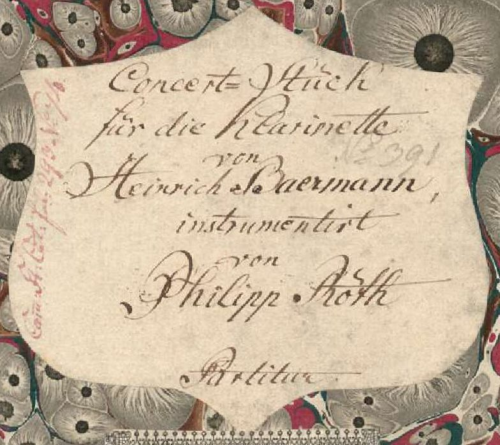 Concert=Stück
für die Klarinette
von
Heinrich Baermann,
instrumentirt
von
Philipp Röth
Partitur
No 391